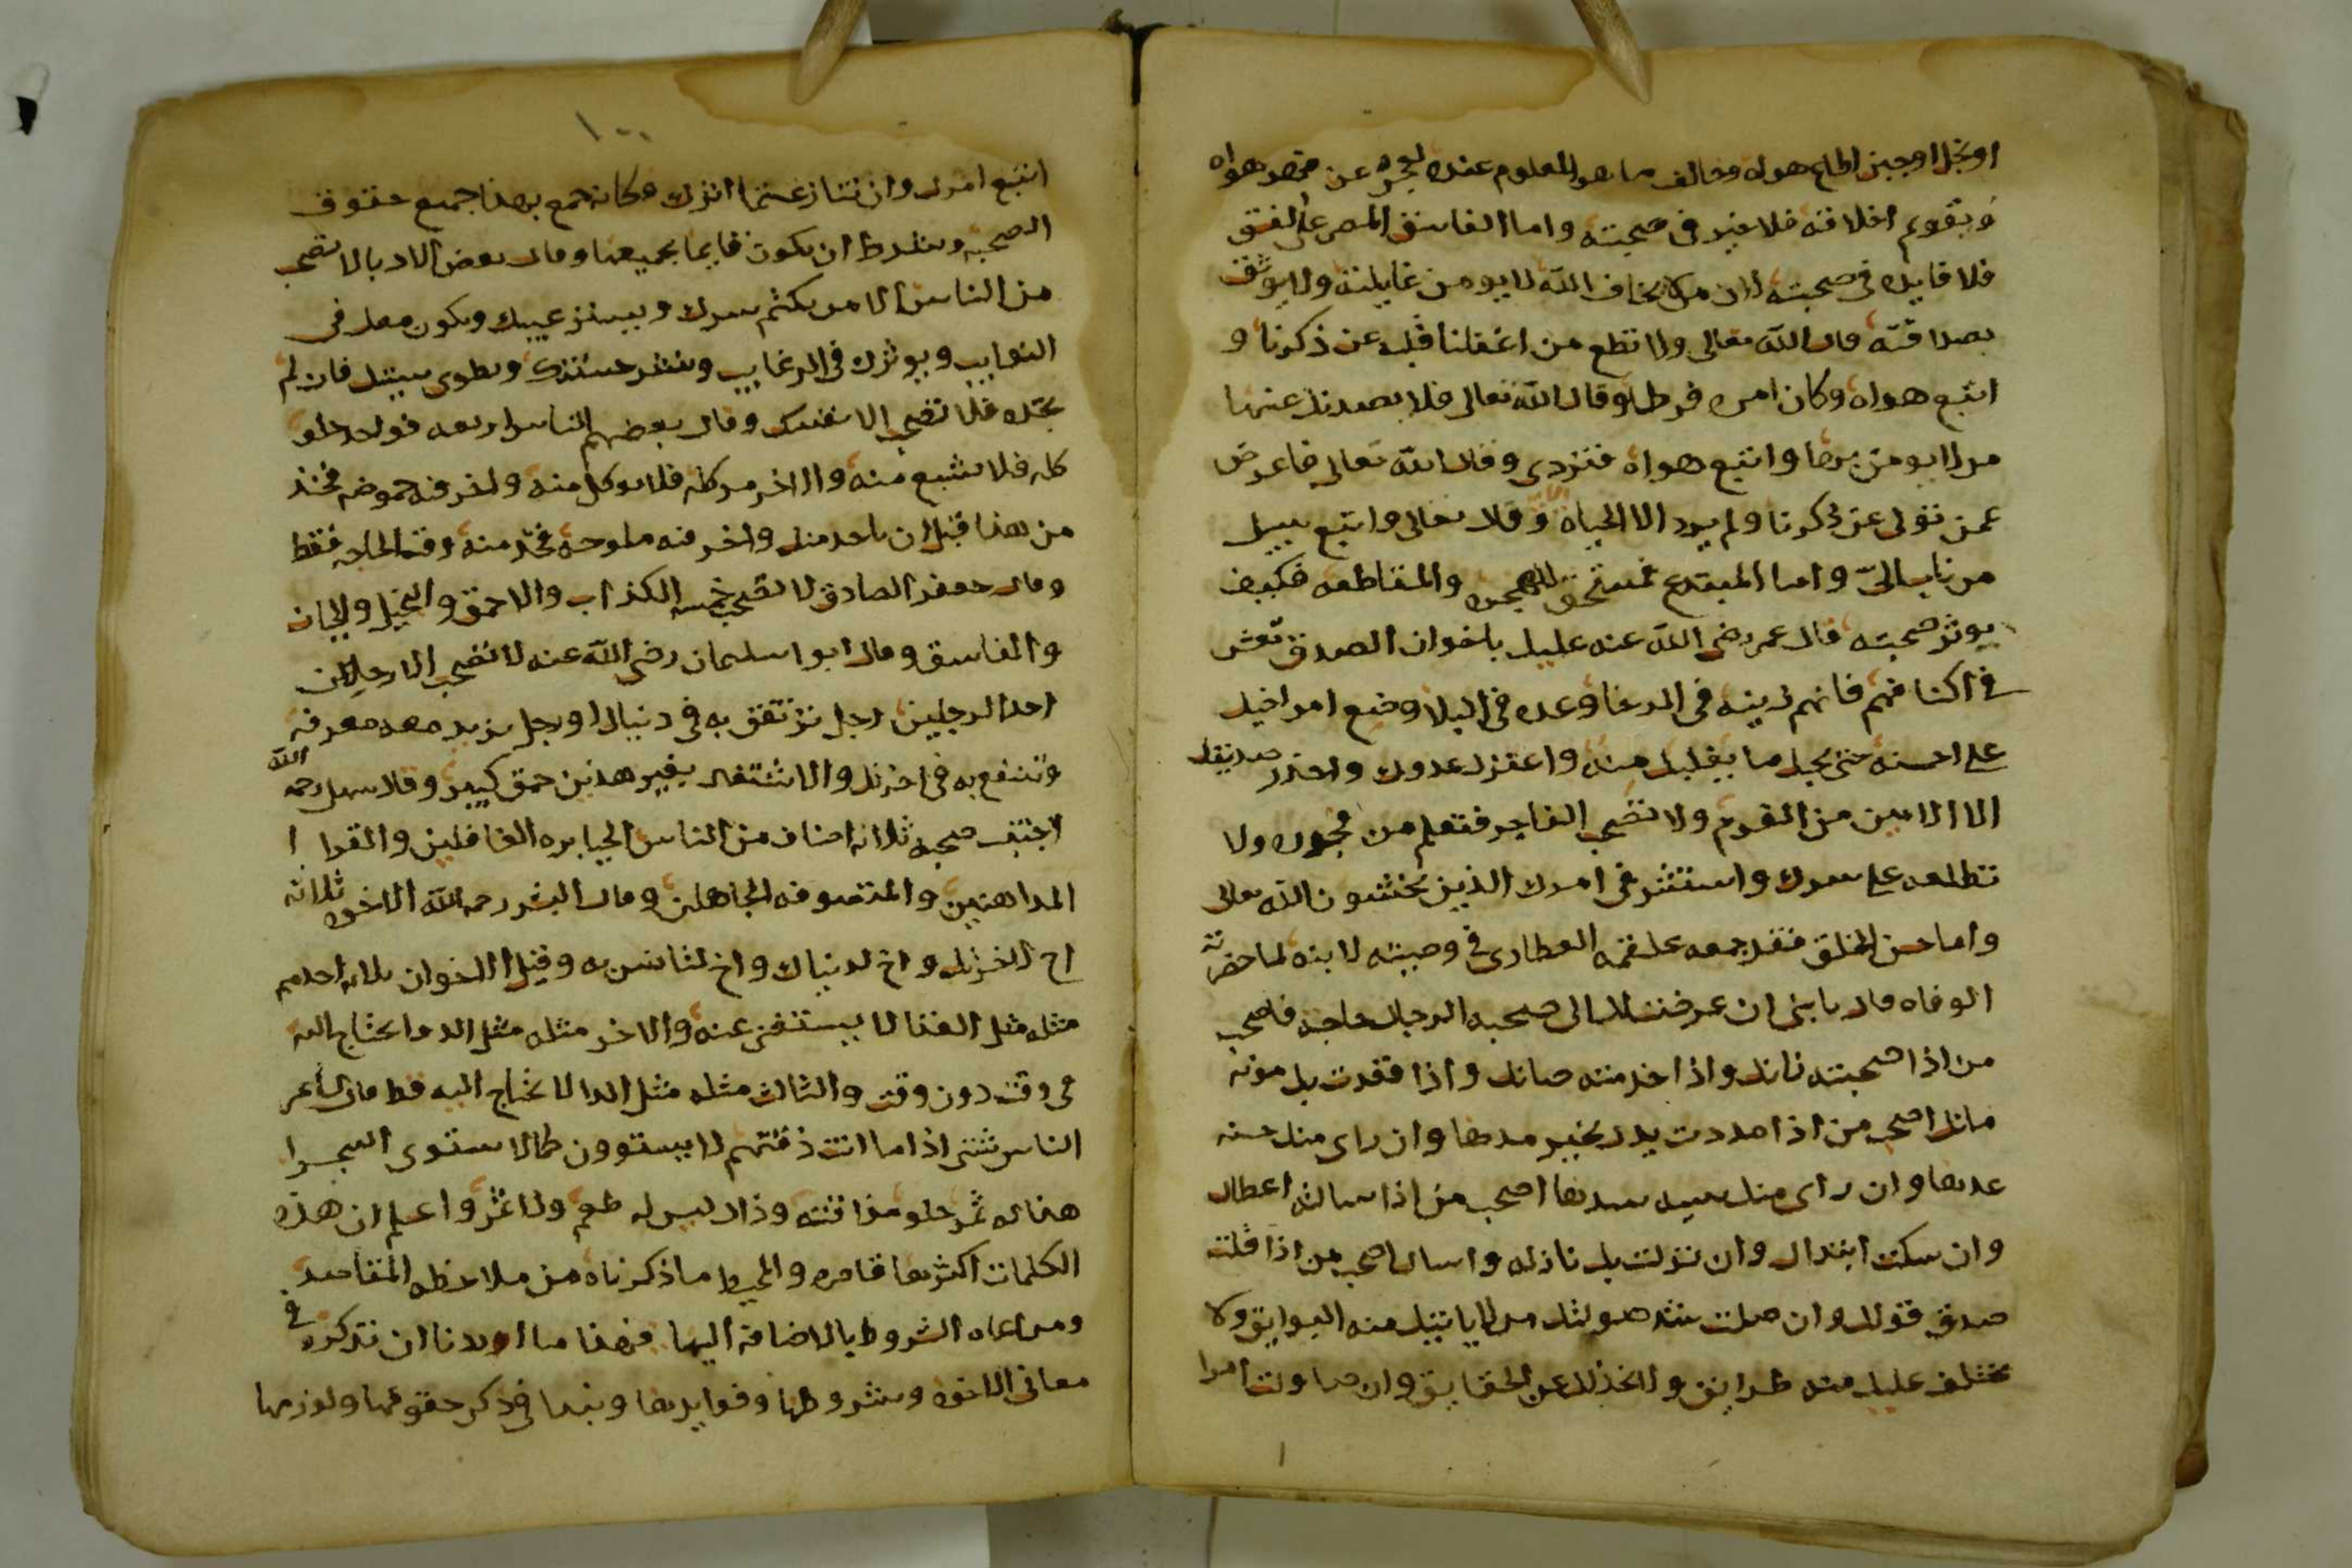 او بخل او جبن اطاع هواه وخالف ما هو المعلوم عنده لعجزه عن قهر هواه
وتقويم اخلاقه فلا خير في صحبته واما الفاسق المصر على الفسق
فلا فايده في صحبته لان من لا يخاف الله لا يومن غايلته ولا يوثق
بصداقته قال الله تعالى ولا تطع من اغفلنا قلبه عن ذكرنا و
اتبع هواه وكان امره فرطا وقال الله تعالى فلا يصدنك عنها
من لا يومن بها واتبع هواه فتردى وقال الله تعالى فاعرض
عمن تولى عن ذكرنا ولم يرد الا الحياة وقال تعالى واتبع سبيل
من اناب الىّ واما المبتدع فمستحق للهجره والمقاطعه فكيف
يوثر صحبته قال عمر رضى الله عنه عليك باخوان الصدق تعش
في اكنافهم فانهم زينه في الرخا وعده في البلا وضع امر اخيك
على احسنه حتى يجيك ما يغلبك منه واعتزل عدوك واحذر صديقك
الا الامين من القوم ولا تصحب الفاجر فتعلم من فجوره ولا
تطلعه على سرك واستشر في امرك الذين يخشون الله تعالى
واما حسن الخلق فقد جمعه علقمه العطاردى في وصيته لابنه لما حضرته
الوفاه قال يا بنى ان عرضت لك الى صحبه الرجال حاجه فاصحب
من اذا صحبته زانك واذا خدمته صانك واذا قعدت بك مونه
مانك اصحب من اذا مددت يدك بخير مدها وان راى منك حسنه
عدها وان راى منك سيه سدها اصحب من اذا سالته اعطاك
وان سكت ابتداك وان نزلت بك نازله واساك اصحب من اذا قلت
صدق قولك وان صلت شد صولتك من لا ياتيك منه البوايق ولا
يختلف عليك منه طرايق ولا يخذلك عن الحقايق وان حاولت امرا
١٠٠
اتبع امرك وان تنازعتما اثرك وكانه جمع بهذا جميع حقوق
الصحبه وشرط ان يكون قايما بجميعها وقال بعض الادبا لا تصحب
من الناس الا من يكتم سرك ويستر عيبك ويكون معك في
النوايب ويوثرك في الرغايب وينشر حسنتك ويطوى سيتك فان لم
تجده فلا تصحب الا نفسك وقال بعضهم الناس اربعه فواحد حلو
كله فلا تشبع منه والاخر مر كله فلا توكل منه واخر فيه حموضه فخذ
من هذا قبل ان ياخذ منك واخر فيه ملوحه فخذ منه وقت الحاجه فقط
وقال جعفر الصادق لا تصحب خمسه الكذاب والاحمق والبخيل والجبان
والفاسق وقال ابو سليمان رضى الله عنه لا تصحب الا رجلين
احد الرجلين رجل ترتفق به في دنياك او رجل تزيد معه معرفه
وتنتفع به في اخرتك والاشتغال بغير هذين حمق كبير وقال سهل رحمه الله
اجتنب صحبه ثلاثه اصناف من الناس الجبابره الغافلين والقرا
المداهنين والمتصوفه الجاهلين وقال البشر رحمه الله الاخوه ثلاثه
اخ لاخرتك واخ لدنياك واخ لتانس به وقيل الاخوان ثلاثه احدهم
مثله مثل الغذا لا يستغنى عنه والاخر مثله مثل الدوا يحتاج اليه
في وقت دون وقت والثالث مثله مثل الدا لا يحتاج اليه قط قال شاعر
الناس شتى اذا ما انت ذقتهم لا يستوون كما لا يستوى الشجر
هذا له ثمر حلو مذاقته وذاك ليس له طعم ولا ثمر واعلم ان هذه
الكلمات اكثرها قاصره والمحيط ما ذكرناه من ملاحظه المقاصد
ومراعاه الشروط بالاضافه اليها فهذا ما اردنا ان نذكره في
معانى الاخوه وشروطها وفوايدها ونبدا في ذكر حقوقها ولوازمها